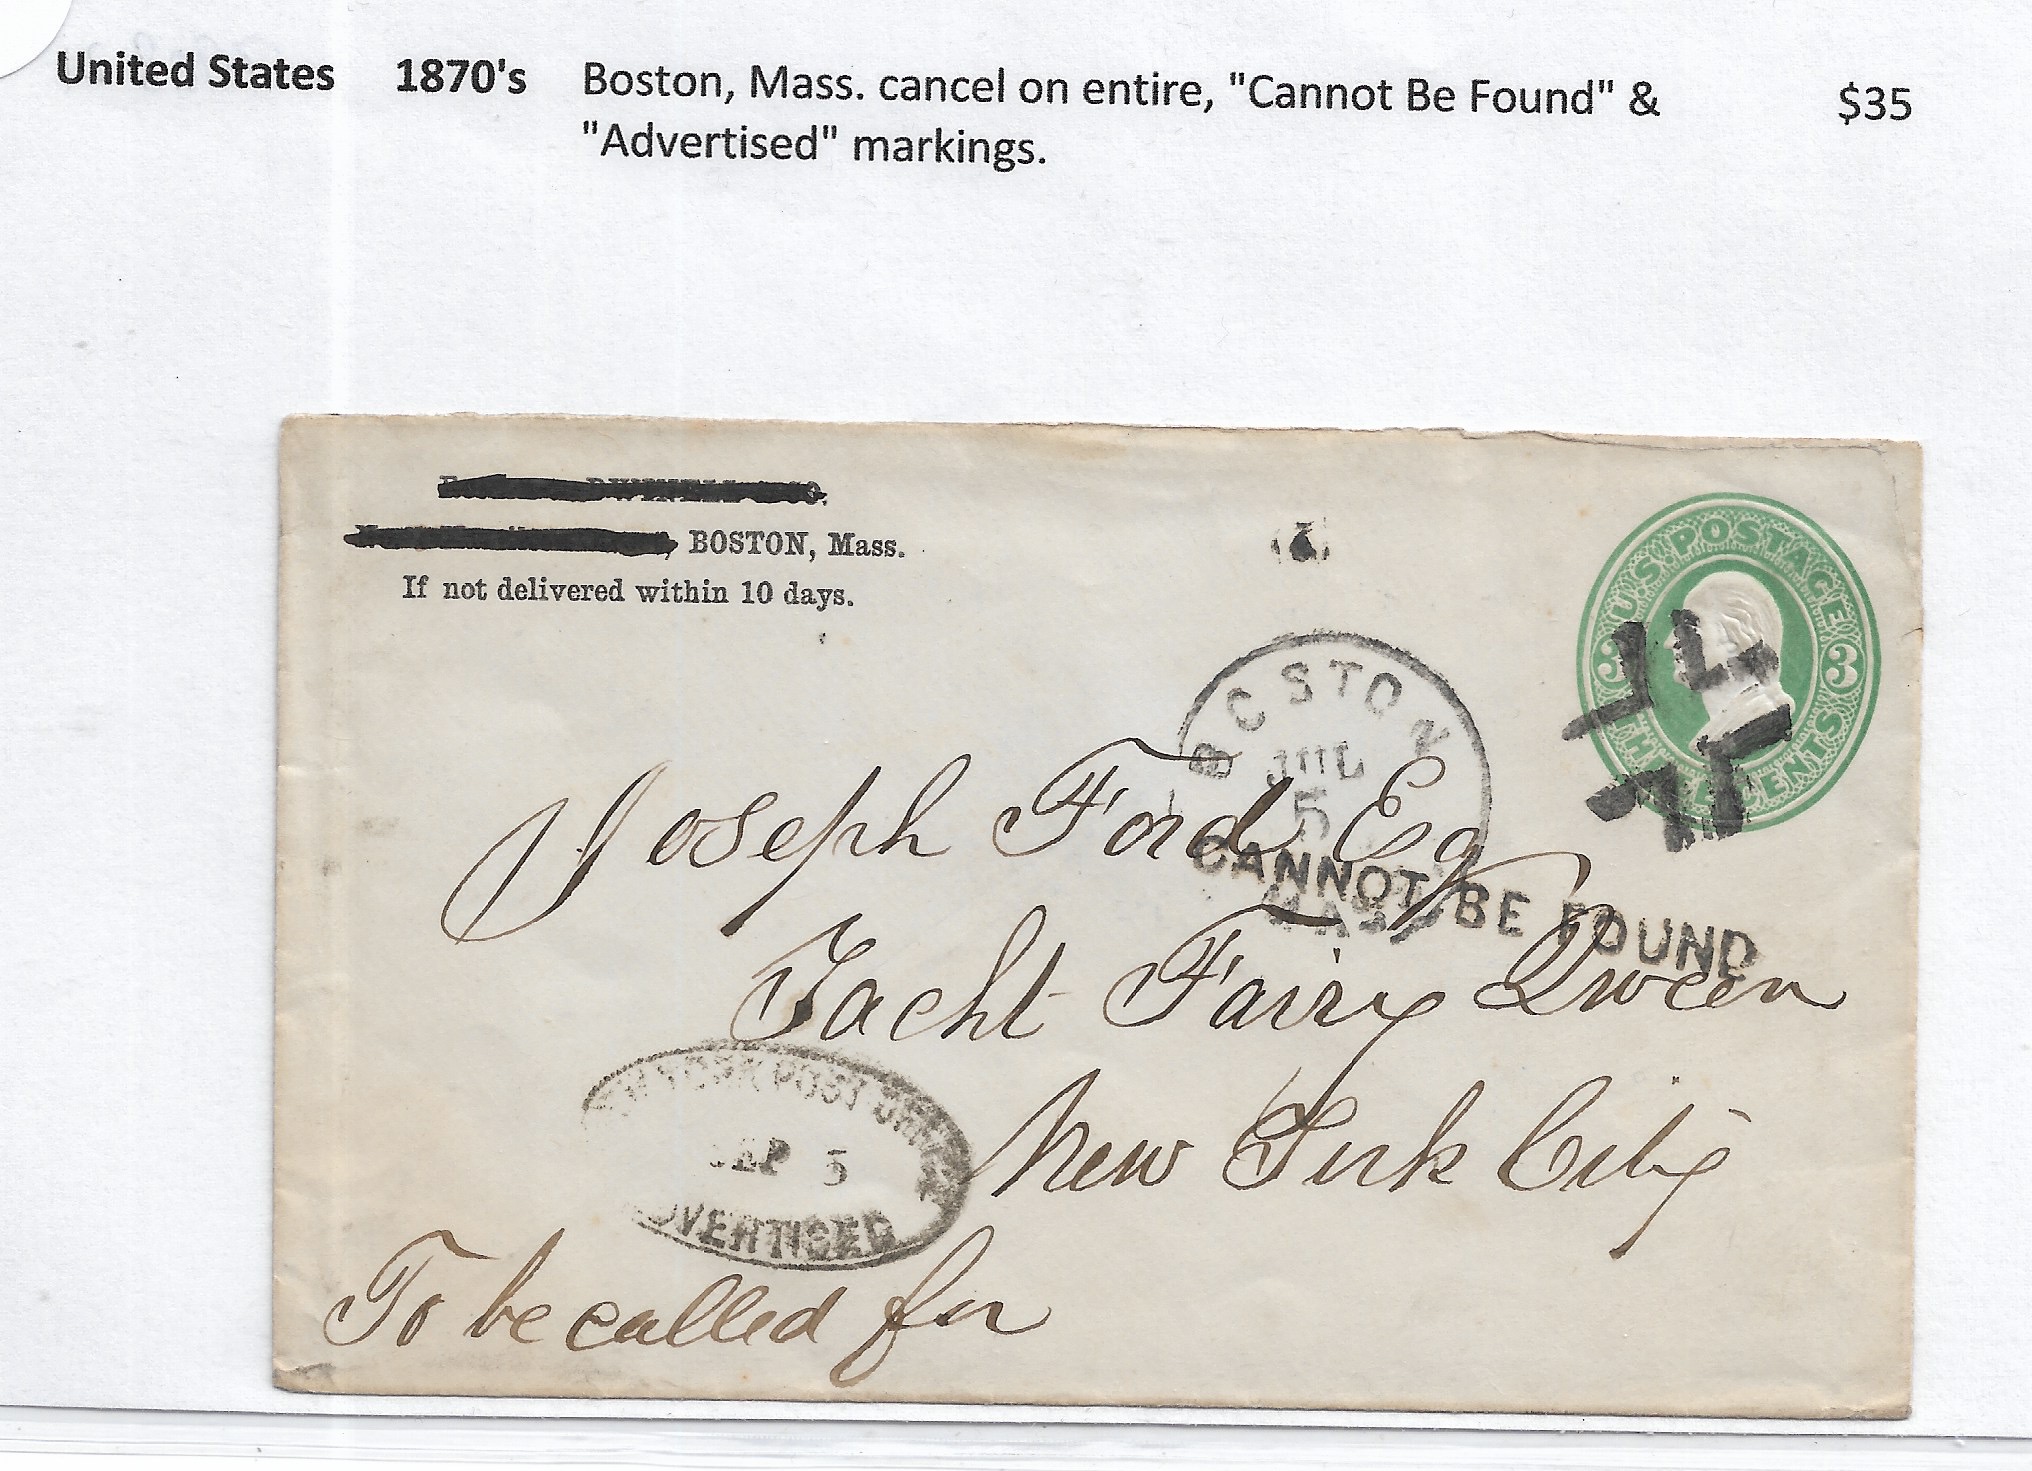 United States 1870's Boston, Mass. cancel on entire, "Cannot Be Found" & $35
"Advertised" markings.
BOSTON, Mass.
If not delivered within 10 days.
U.S. POSTAGE
3 3
THREE CENTS
BOSTON
JUL
5
MASS
CANNOT BE FOUND
Joseph Ford Esq
Yacht Fairy Queen
New York City
NEW YORK POST OFFICE
SEP 5
ADVERTISED
To be called for